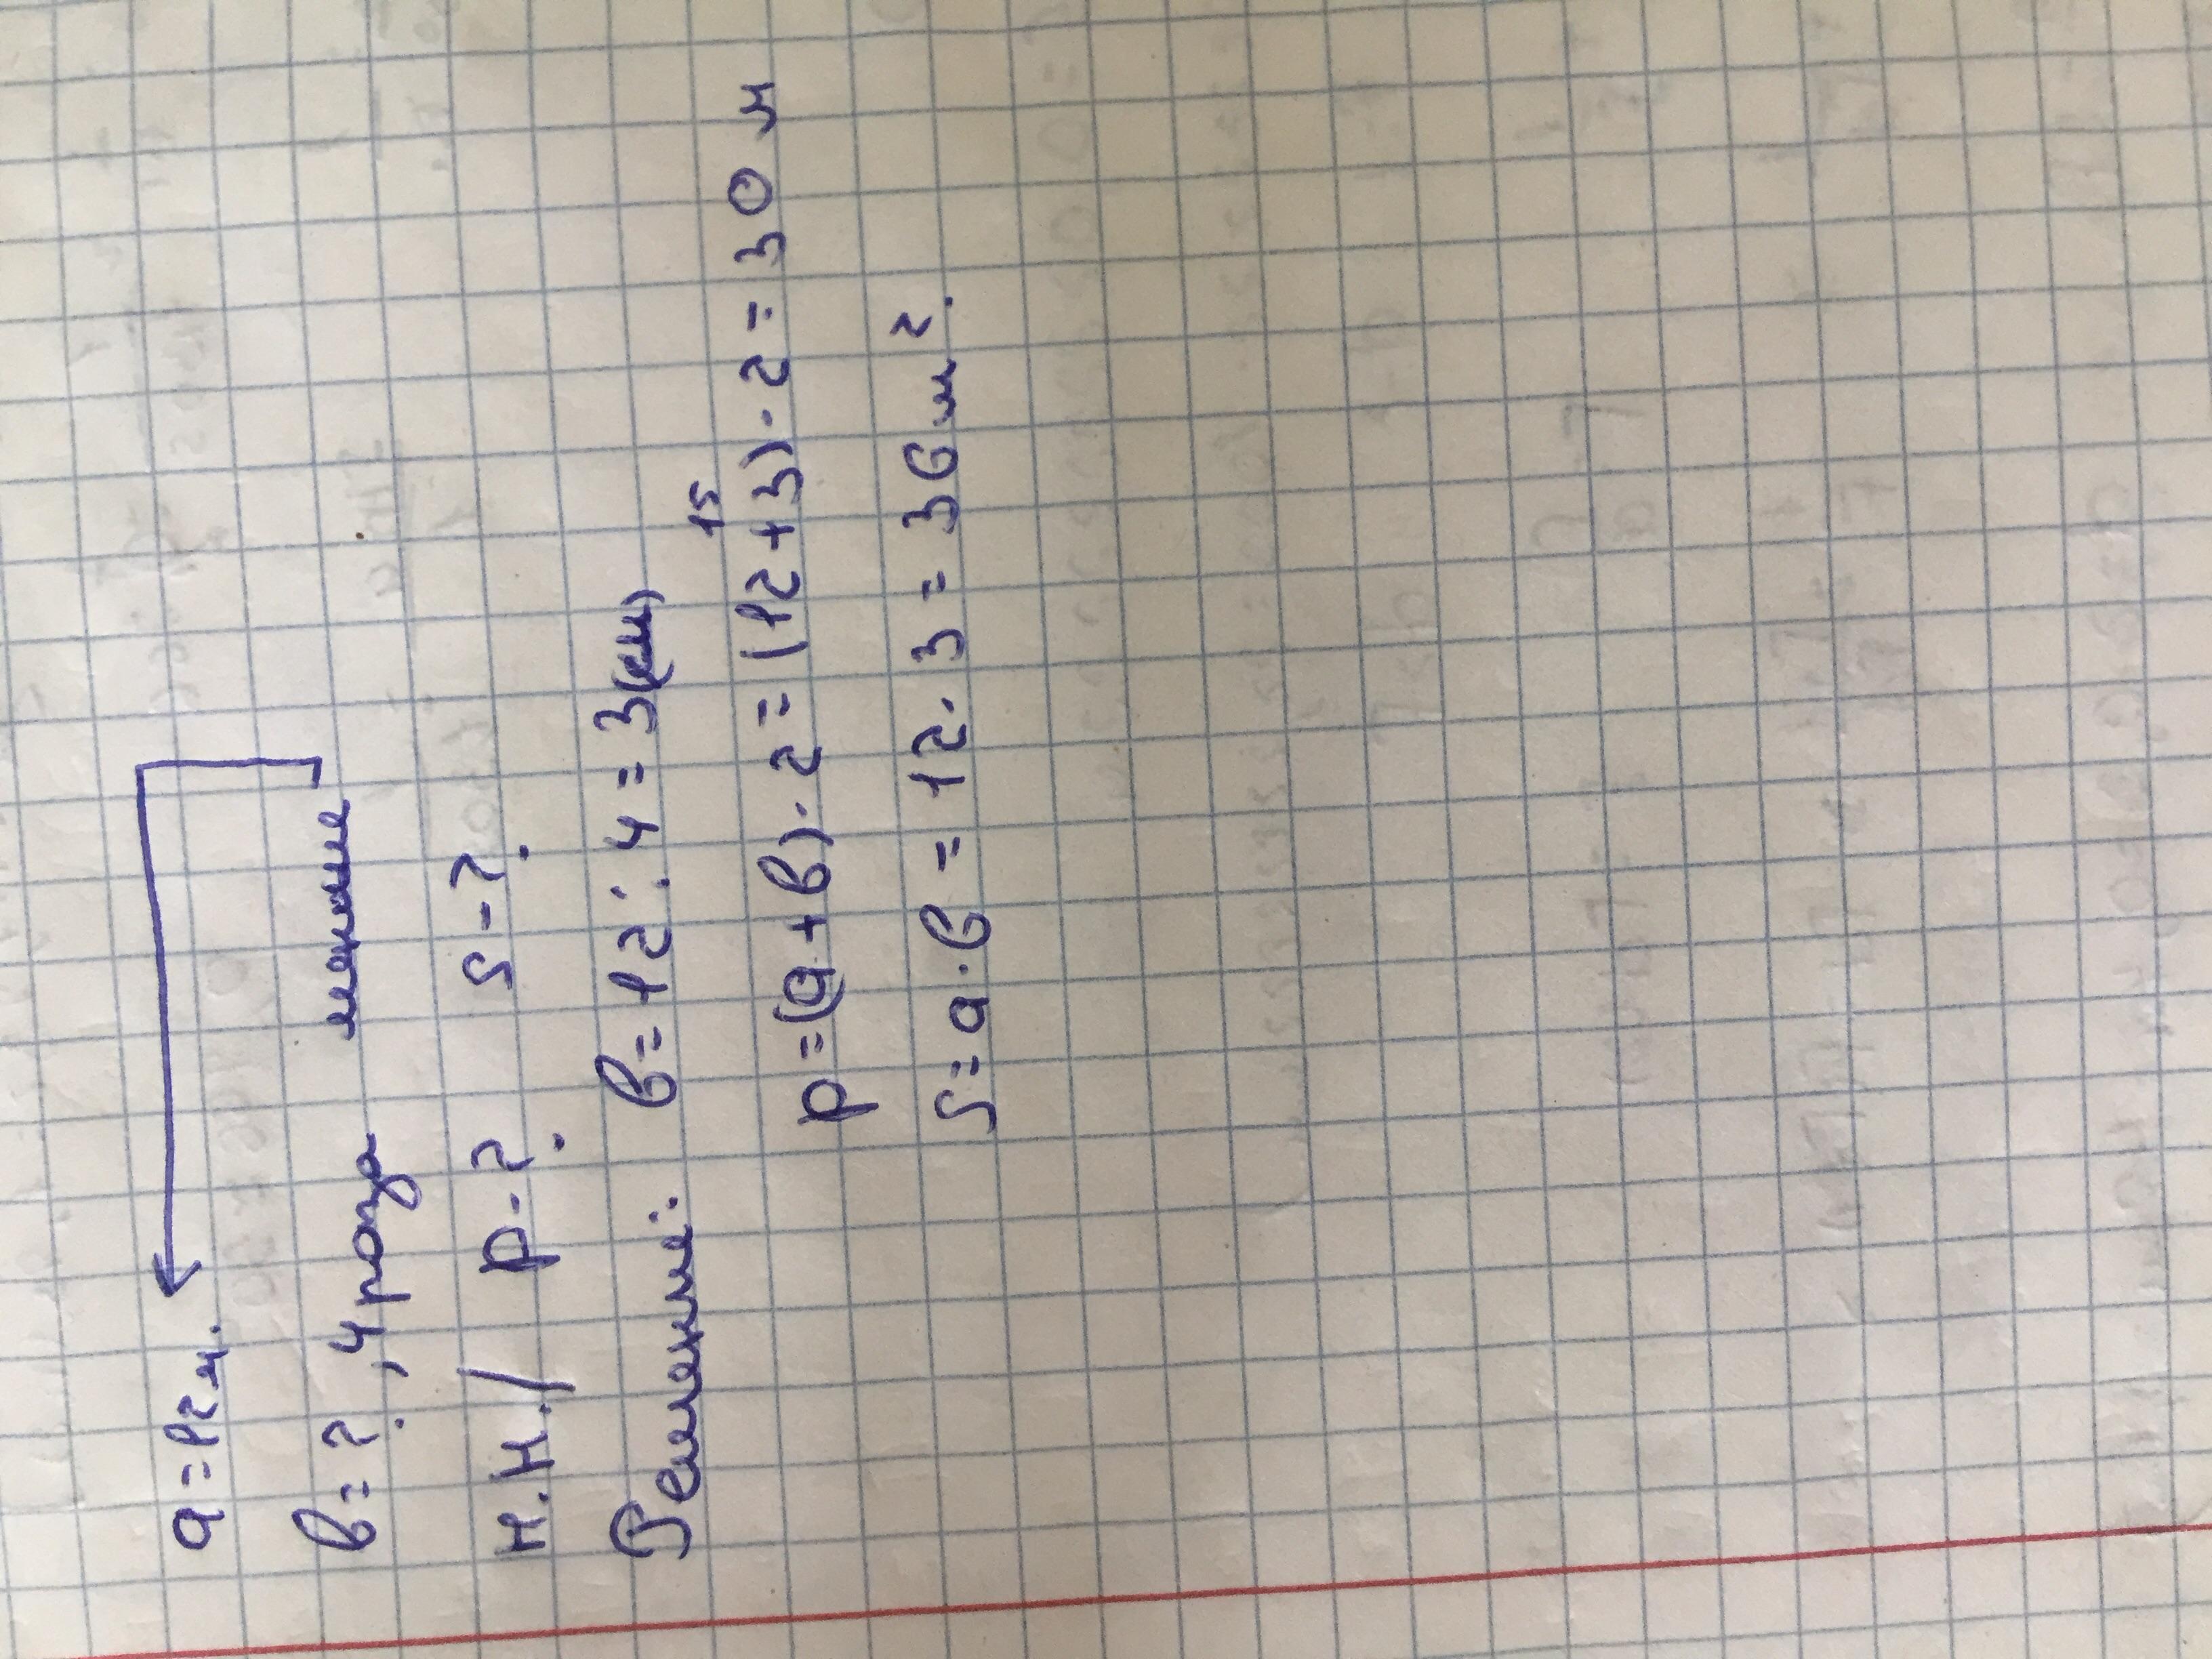 a = 12 м.
в = ?, 4 раза меньше
Н.Н./ P-? S-?
Решение: в = 12 : 4 = 3(см)
P=(a+в)·2=(12+3)·2=30 м
15
S=a·в=12·3=36 м².